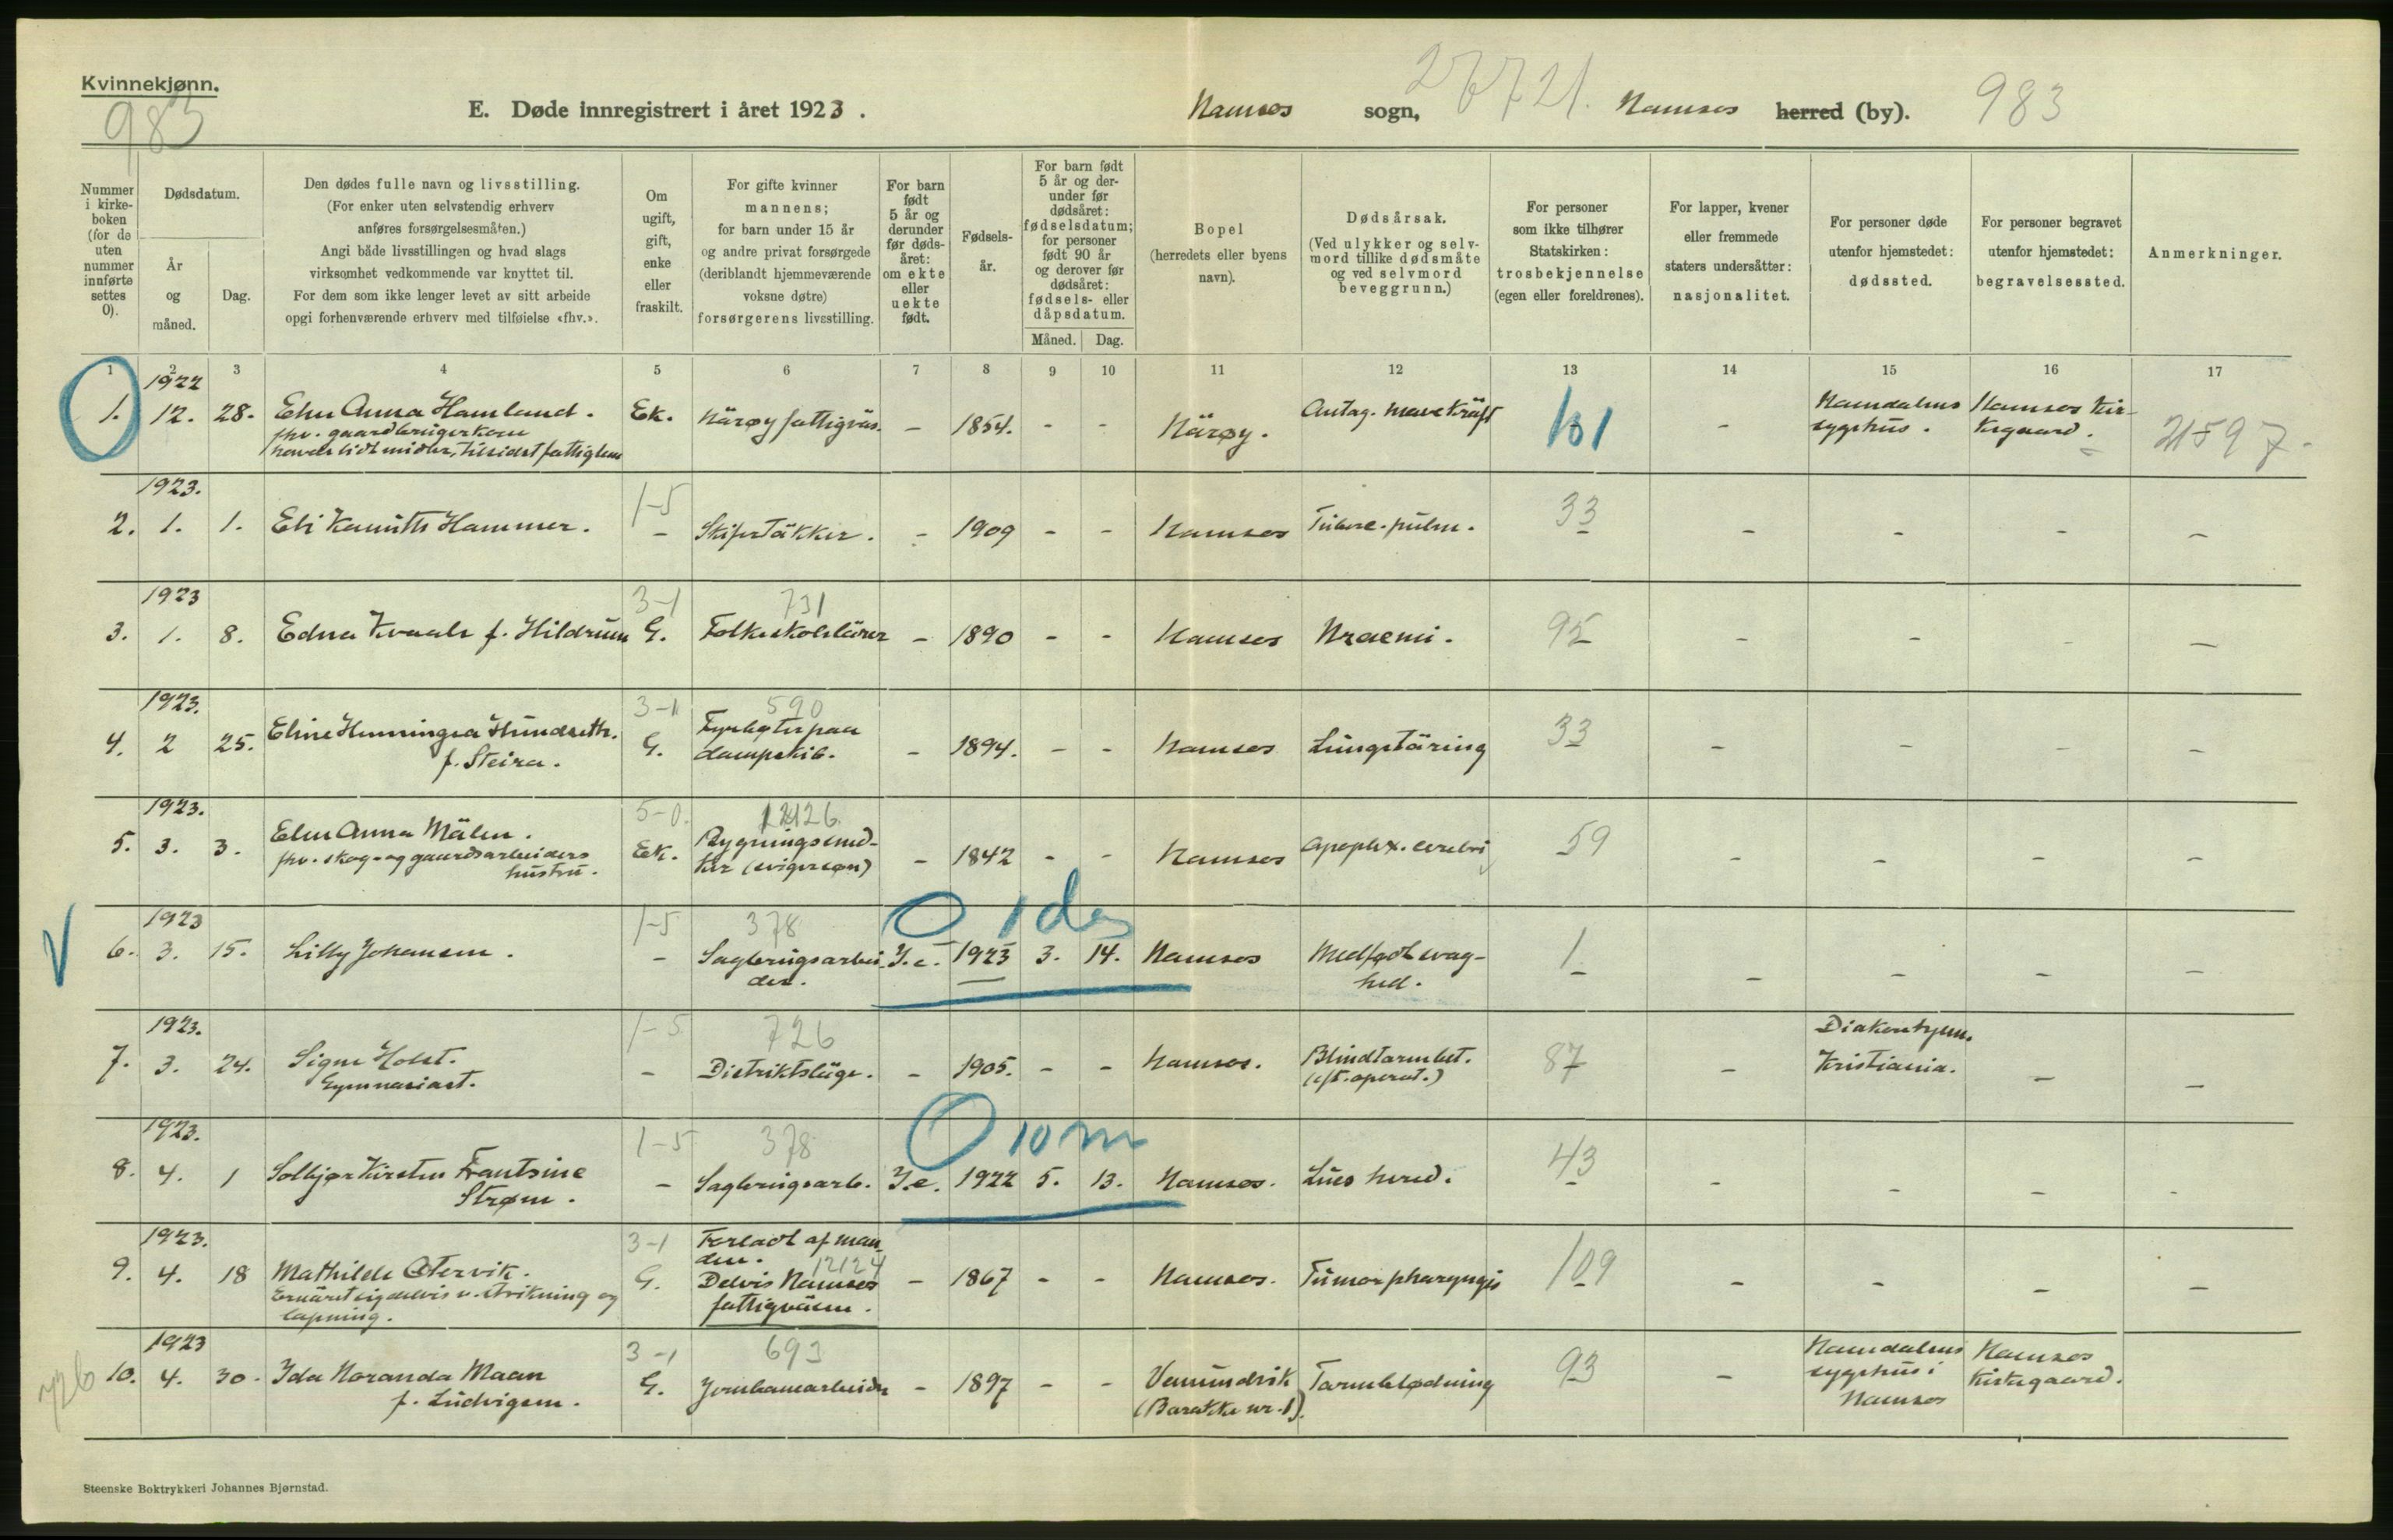 Kvinnekjønn.
983
E. Døde innregistrert i året 1923.
Namsos sogn, 26721. Namsos herred (by). 983
Nummer i kirke-boken (for de uten nummer innførte settes 0).
Dødsdatum.
År og måned.
Dag.
Den dødes fulle navn og livsstilling.
(For enker uten selvstendig erhverv
anføres forsørgelsesmåten.)
Angi både livsstillingen og hvad slags
virksomhet vedkommende var knyttet til.
For dem som ikke lenger levet av sitt arbeide
opgi forhenværende erhverv med tilføielse «fhv.».
Om ugift, gift, enke eller fraskilt.
For gifte kvinner
mannens;
for barn under 15 år
og andre privat forsørgede
(deriblandt hjemmeværende
voksne døtre)
forsørgerens livsstilling.
For barn født 5 år og derunder før døds-året: om ekte eller uekte født.
Fødsels-år.
For barn født 5 år og der-under før dødsåret: fødselsdatum; for personer født 90 år og derover før dødsåret: fødsels- eller dåpsdatum.
Måned. Dag.
Bopel
(herredets eller byens
navn).
Dødsårsak.
(Ved ulykker og selv-
mord tillike dødsmåte
og ved selvmord
beveggrunn.)
For personer
som ikke tilhører
Statskirken:
trosbekjennelse
(egen eller foreldrenes).
For lapper, kvener
eller fremmede
staters undersåtter:
nasjonalitet.
For personer døde
utenfor hjemstedet:
dødssted.
For personer begravet
utenfor hjemstedet:
begravelsessted.
Anmerkninger.
1 2 3 4 5 6 7 8 9 10 11 12 13 14 15 16 17
1922
1. 12. 28. Elen Anna Hamland. Ek. Närøy fattigväs. - 1854. - - Närøy. Antag. mavekräft 101 - Namdalens sygehus. Namsos Kirkegaard. 21597.
fhv. gaardbrugerkone
1923.
2. 1. 1. Eli Kamitte Hammer. 1-5 - Skifertäkker. - 1909 - - Namsos Tuberc. pulm. 33 - - - -
1923
3. 1. 8. Edna Kvaale f. Hildrum 3-1 G. 731 Folkeskolelärer - 1890 - - Namsos Uraemi. 95 - - - -
1923.
4. 2 25. Eline Henningea Hundseth. 3-1 G. 590 Fyrbøter paa - 1894. - - Namsos Lungetäring 33 - - - -
f. Steira. dampskib.
1923.
5. 3. 3. Elen Anna Mälen. 5-0. Ek. 12126 Bygningssned- - 1842 - - Namsos Apoplex. cerebri 59 - - - -
fhv. skog- og gaardsarbeiders ker (svigersøn)
hustru.
0 1 dag
1923
V 6. 3. 15. Lilly Johansen. 1-5 - 378 Sagbrugsarbei- Y.e. 1923 3. 14. Namsos Medfødt svag- 1 - - - -
der. hed.
1923.
7. 3. 24. Signe Holst. 1-5 - 726 Distriktsläge. - 1905. - - Namsos. Blindtarmbet. 87 - Diakonhjem. Kristiania. - -
Gymnasiast. (eft. operat.)
0 10 m
1923.
8. 4. 1 Solbjør Kirsten Frantsine 1-5 - 378 Sagbrugsarb. Y.e. 1922 5. 13. Namsos. Lues hered. 43 - - - -
Strøm.
1923.
9. 4. 18 Mathilde Otervik. 3-1 G. Forladt af man-
den. 12124
Delvis Namsos - 1867 - - Namsos. Tumor pharyngis 109 - - - -
fattigväsen.
Ernäret sig delvis v. strikning og
lapning.
1923
726 10. 4. 30. Ida Noranda Maan 3-1 G. 693 Jernbanearbeider - 1897 - - Vemundvik Tarmblødning 93 - Namdalens sygehus i Namsos Namsos Kirkegaard. -
f. Ludvigsen. (Barakke nr. 1).
Steenske Boktrykkeri Johannes Bjørnstad.